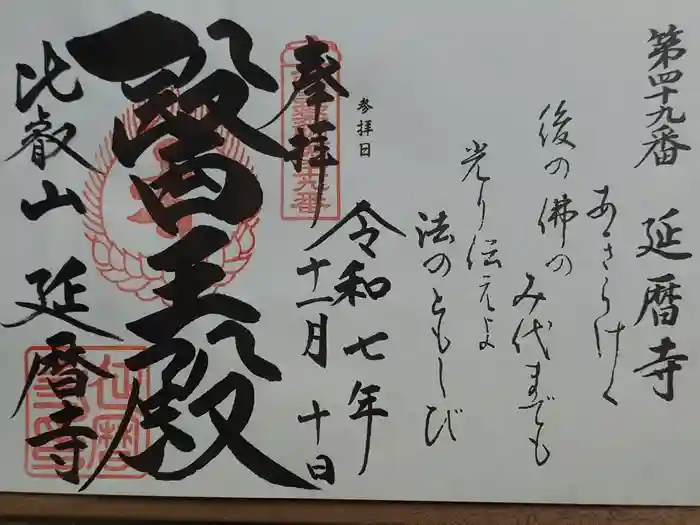 第四十九番 延暦寺
あきらけく
後の佛の
み代までも
光り伝えよ
法のともしび
参拝日
令和七年
十一月 十日
奉拝
醫王殿
比叡山 延暦寺